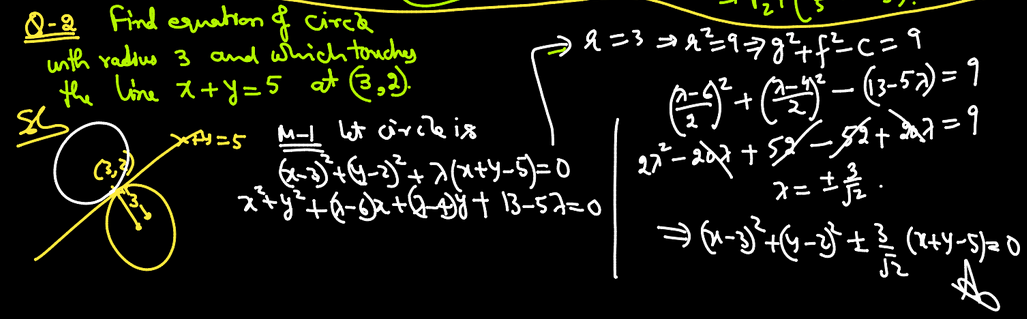 Q-2 Find equation of circle
with radius 3 and which touches
the line x+y=5 at (3,2).
Sol
x+y=5
(3,2)
3
M-1 let circle is
(x-3)²+(y-2)²+λ(x+y-5)=0
x²+y²+(λ-6)x+(λ-4)y+13-5λ=0
→ r=3 ⇒ r²=9 ⇒ g²+f²-c=9
((λ-6)/2)²+((λ-4)/2)²-(13-5λ)=9
2λ²-20λ+52-52+20λ=9
λ=±3/√2.
⇒ (x-3)²+(y-2)²±3/√2(x+y-5)=0